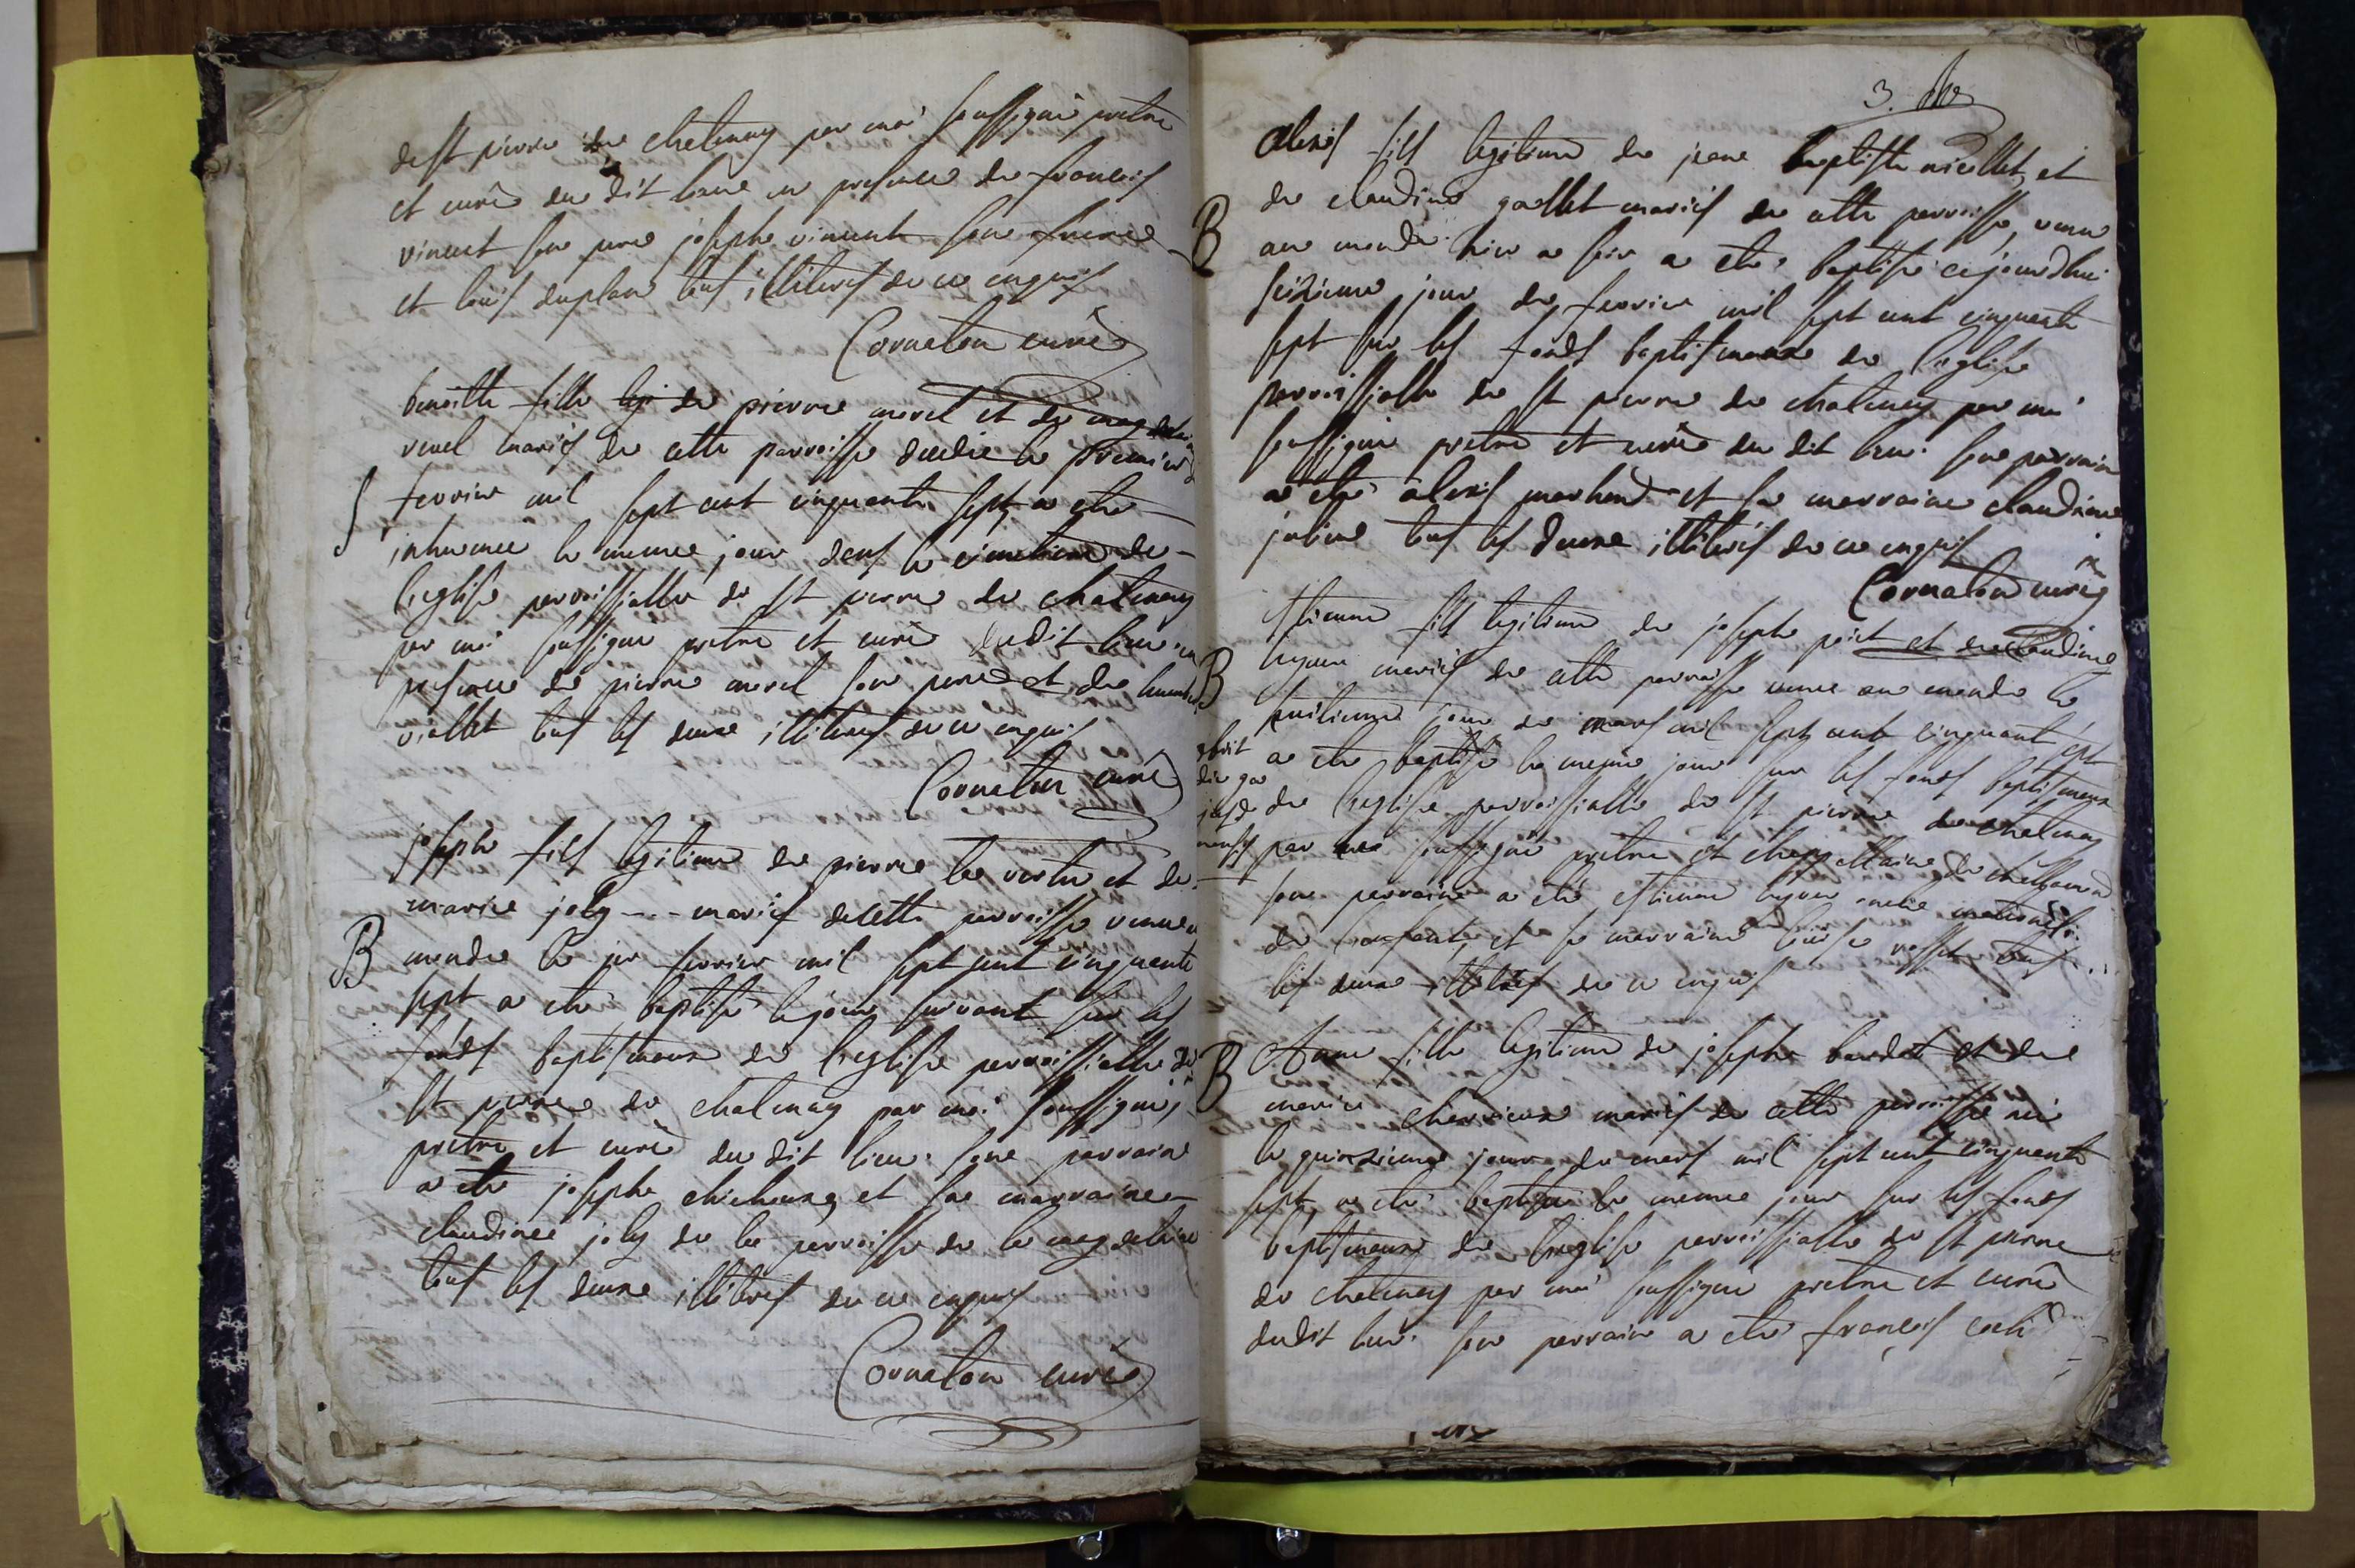 de st pierre de chalencey par moi soussigné pretre
et curé du dit lieu en presence de francois
vincent son pere josephe vincent son frere
et louis duplan tous illiterés de ce enquis
Cornaton curé
benoitte fille leg de pierre morel et de magdelaine
revel mariés de cette parroisse decedée le premier
S fevrier mil sept cent cinquante sept a eté
inhumée le meme jour dans le cimetiere de
l'eglise parroissialle de st pierre de chalencey
par moi soussigné pretre et curé dudit lieu en
presence de pierre morel son pere et de
viallet tous les deux illiterés de ce enquis
Cornaton curé
josephe fils legitime de pierre la vertu et de
marie joly --- mariés de cette parroisse venu au
B monde le jer fevrier mil sept cent cinquante
sept a eté baptisé le jour suivant sur les
fonds baptismaux de l'eglise parroissialle de
st pierre de chalencey par moi soussigné
pretre et curé du dit lieu. son parrain
a eté josephe chicheux et sa marraine
claudine joly de la parroisse de la magdelaine
tous les deux illiterés de ce enquis
Cornaton curé
3.
alexis fils legitime de jean baptiste viallet, et
de claudine gallet mariés de cette parroisse, venu
B au monde hier a soir a eté baptisé cejourdhui
seizieme jour de fevrier mil sept cent cinquante
sept sur les fonds baptismaux de l'eglise
parroissialle de st pierre de chalencey par moi
soussigné pretre et curé du dit lieu. son parrain
a eté alexis marhend et sa marraine claudine
jubine tous les deux illiterés de ce enquis
Cornaton curé
estienne fils legitime de josephe poict et de claudine
B mariés de cette parroisse venu au monde le
huitieme jour de mars mil sept cent cinquant sept
a eté baptisé le meme jour sur les fonds baptismaux
de l'eglise parroissialle de st pierre de chalencey
par moi soussigné pretre et chappellain de
son parrain a eté estienne oncle maternel
de l'enfant, et sa marraine louise rosset tous
les deux illiterés de ce enquis
B Anne fille legitime de josephe bardet et de
marie cherieux mariés de cette parroisse née
le quinzieme jour de mars mil sept cent cinquante
sept a eté baptisée le meme jour sur les fonds
baptismaux de l'eglise parroissialle de st pierre
de chalencey par moi soussigné pretre et curé
dudit lieu. son parrain a eté francois